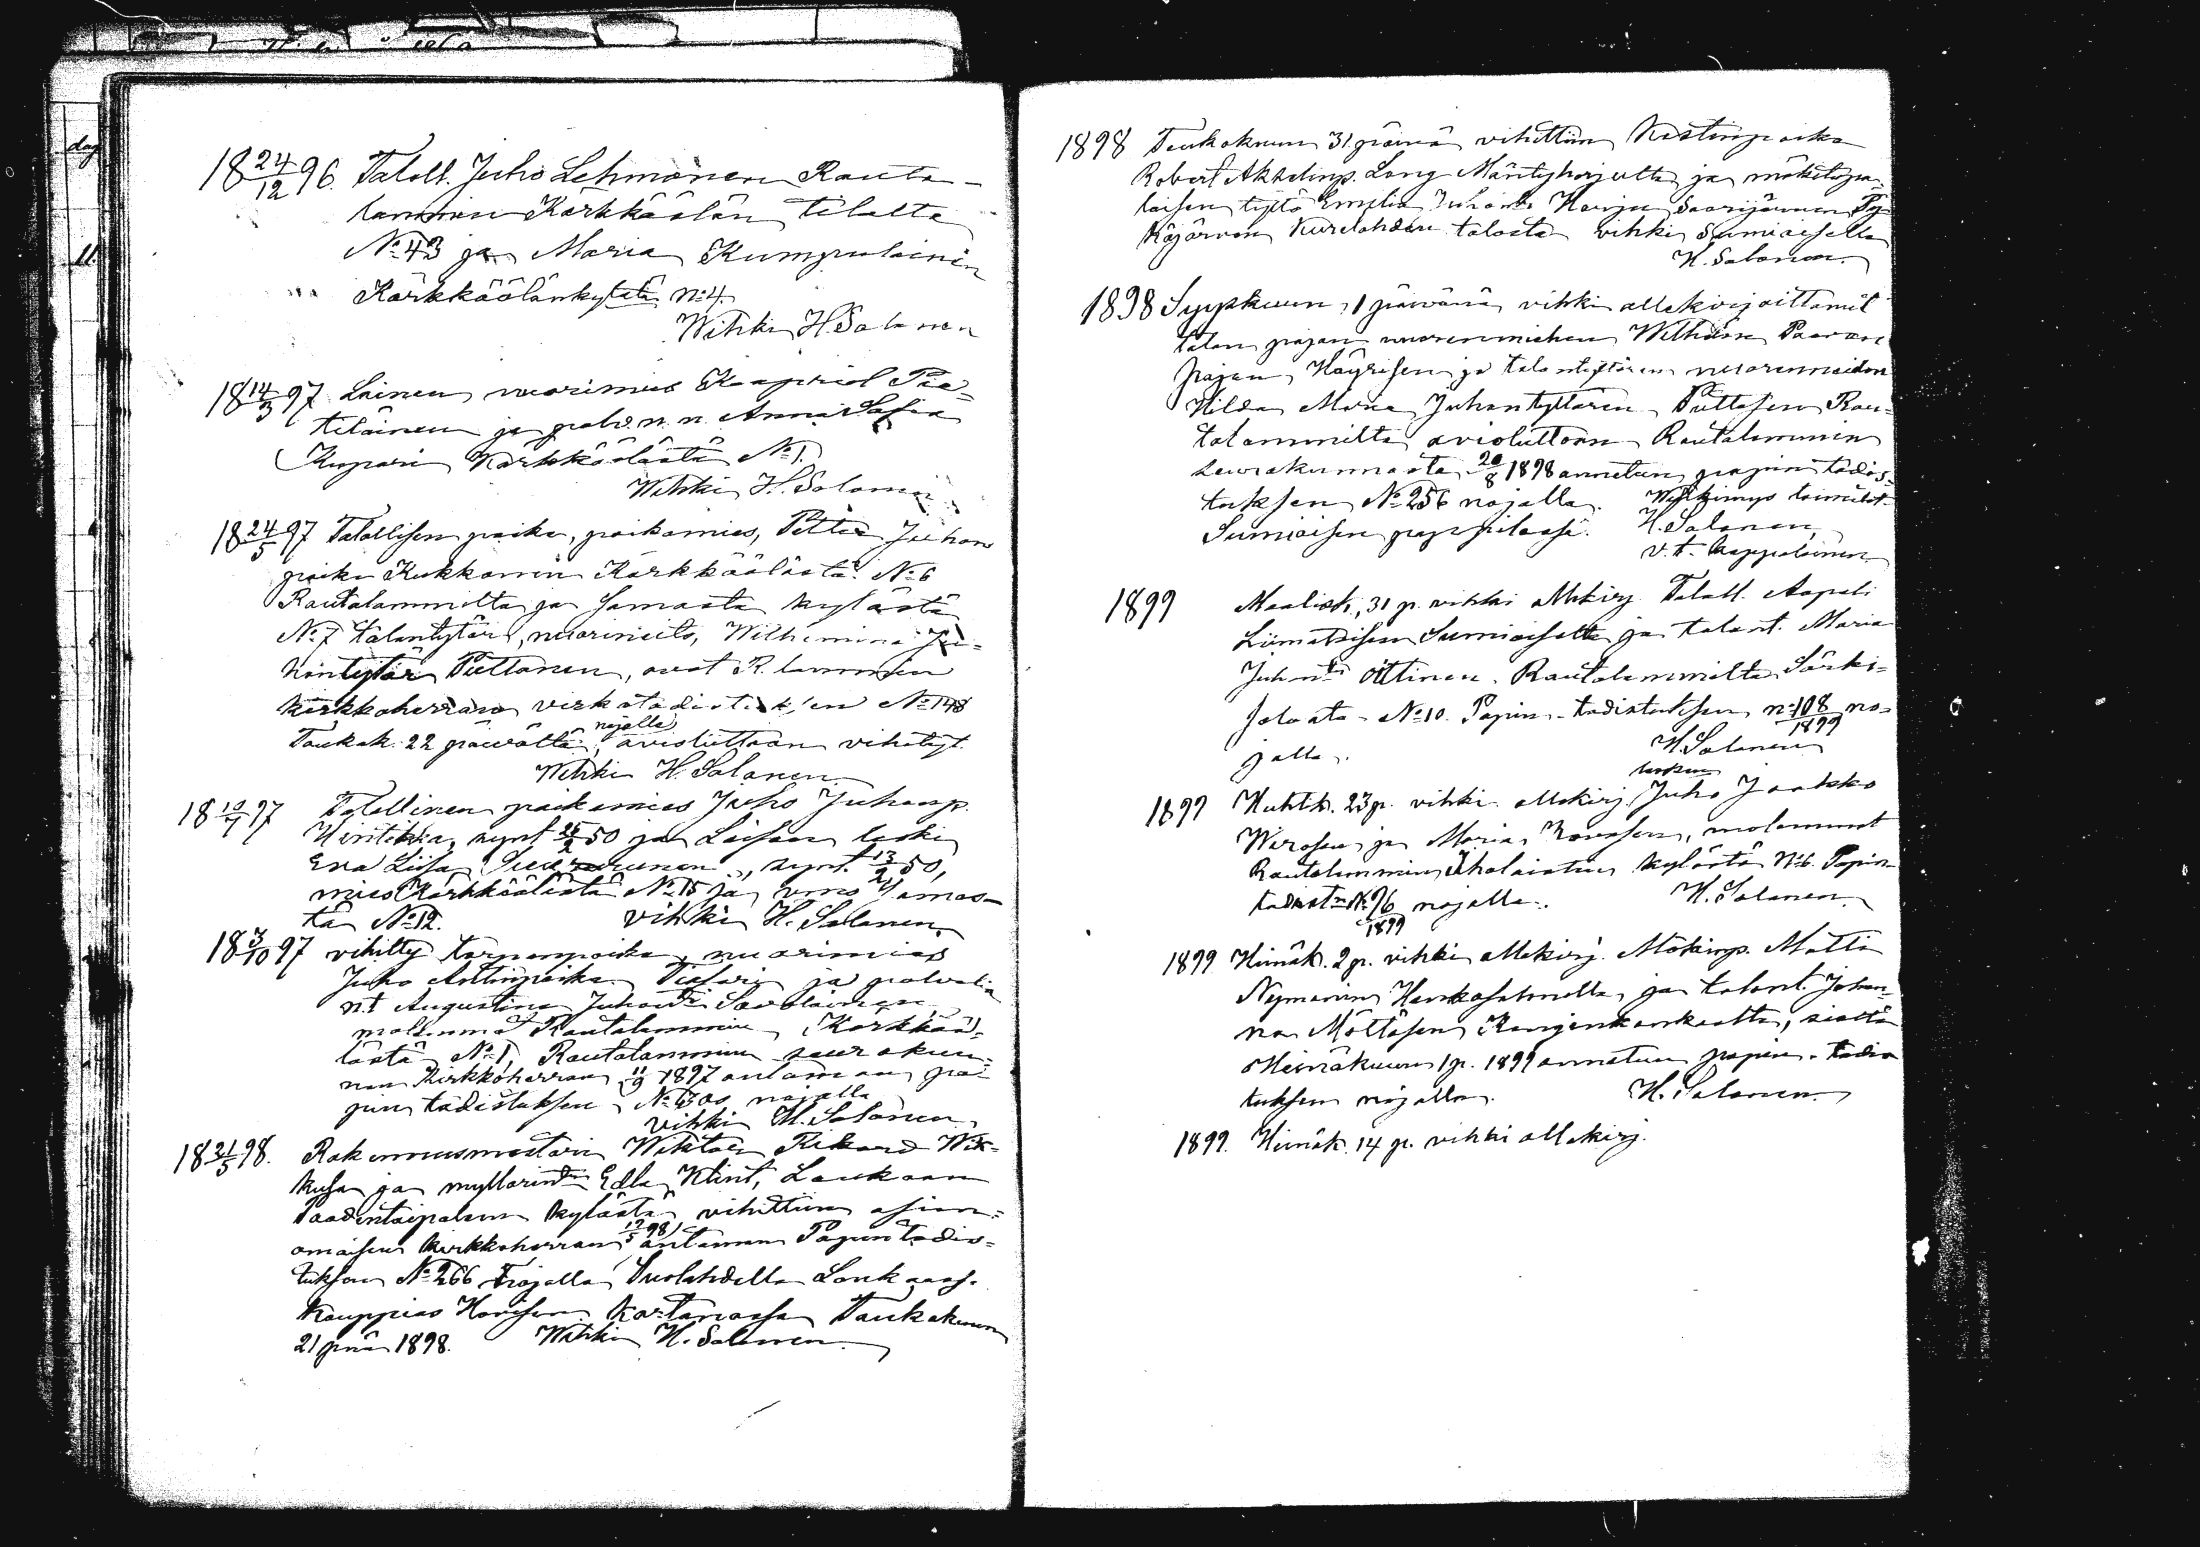 18 24/12 96. Taloll. Juho Lehmonen Rauta-
lammin Kärkkäälän tilalta
No 43 ja Maria Kumpulainen
Kärkkäälänkylä No 4.
Wihki H. Salonen
18 14/3 97 Loinen nuorimies Kaapriel Pie-
tiläinen ja palv. n. n. Anna Sofia
Kupari Kärkkäälästä No 1.
Wihki H. Salonen
18 24/5 97 Talollisen poika, poikamies, Petter Juhon
poika Kukkonen Kärkkäälästä No 6
Rautalammilta ja samasta kylästä
No 7 talontytär, nuorineito, Wilhemina Ju-
hontytär Puttonen, ovat R. lammin
kirkkoherran virkatodistuksen No 148
nojalla
Toukok. 22 päivältä, avioliittoon vihityt.
Wihki H. Salonen
18 10/7 97 Talollinen poikamies Juho Juhonp.
Hintikka, synt 50 ja Loisen leski
Eva Liisa synt. 13/2 50,
mies Kärkkäälästä No 15 ja samas-
ta No 12. vihki H. Salonen.
18 3/10 97 vihitty torpanpoika, nuorimies
Juho Anttinpoika ja palvelia
n.t Augustina Juhontr Savolainen
molemmat Rautalammin Kärkkää-
lästä No 1, Rautalammin seurakun-
nan Kirkkoherran 11/9 1897 antaman pa-
pin todistuksen No nojalla
vihki H. Salonen
18 21/5 98. Rakennusmestari Wiktor Rikard Wik-
ja myllärin Edla Klint, Laukaan
kylästä vihittiin asian-
omaisen kirkkoherran 17/5 98 antaman Papintodis-
tuksen No 266 nojalla Suolahdella Laukaas.
Kauppias Kartanossa Toukokuun
21 pnä 1898. Wihki H. Salonen
1898 Toukokuun 31 päivä vihittiin Kestinpoika
Robert Akselinp. Long Mäntyharjulta ja mökitupa-
laisen tyttö Emilia Juhontr Harju Saarijärven Py-
häjärven talosta vihki Sumiaisella
H. Salonen.
1898 Syyskuun 1 päivänä vihki allekirjoittanut
talon pojan nuorenmiehen Wilhelm Paavon
pojan Häyrisen ja talontyttären nuorenneidon
Hilda Maria Juhontyttären Puttosen Rau-
talammilta avioliittoon Rautalammin
seurakunnasta 20/8 1898 annetun papin todis-
tuksen No 256 nojalla. Wihkimys toimitet.
Sumiaisen pappilassa. H. Salonen
v. t. kappalainen
1899 Maalisk. 31 p. vihki allekirj. Taloll. Aapeli
Liimataisen Sumiaiselta ja talont. Maria
Juhontr Ottinen. Rautalammilta Särki-
salosta No 10. Papin todistuksen no 108/1899 no-
jalla. H. Salonen
lesken
1899 Huhtk. 23 p. vihki allekirj. Juho Jaakko
ja Maria molemmat
Rautalammin kylästä No 6. Papin
todist. No 96/1899 nojalla. H. Salonen.
1899 Heinäk. 2 p. vihki allekirj. Mökinp. Matti
Nymanin Hankasalmella, ja talont. Johan-
na Möttösen Kangenkankaalta, sieltä
Heinäkuun 1 p. 1899 annetun papin-todis
tuksen nojalla. H. Salonen
1899. Heinäk. 14 p. vihki allekirj.